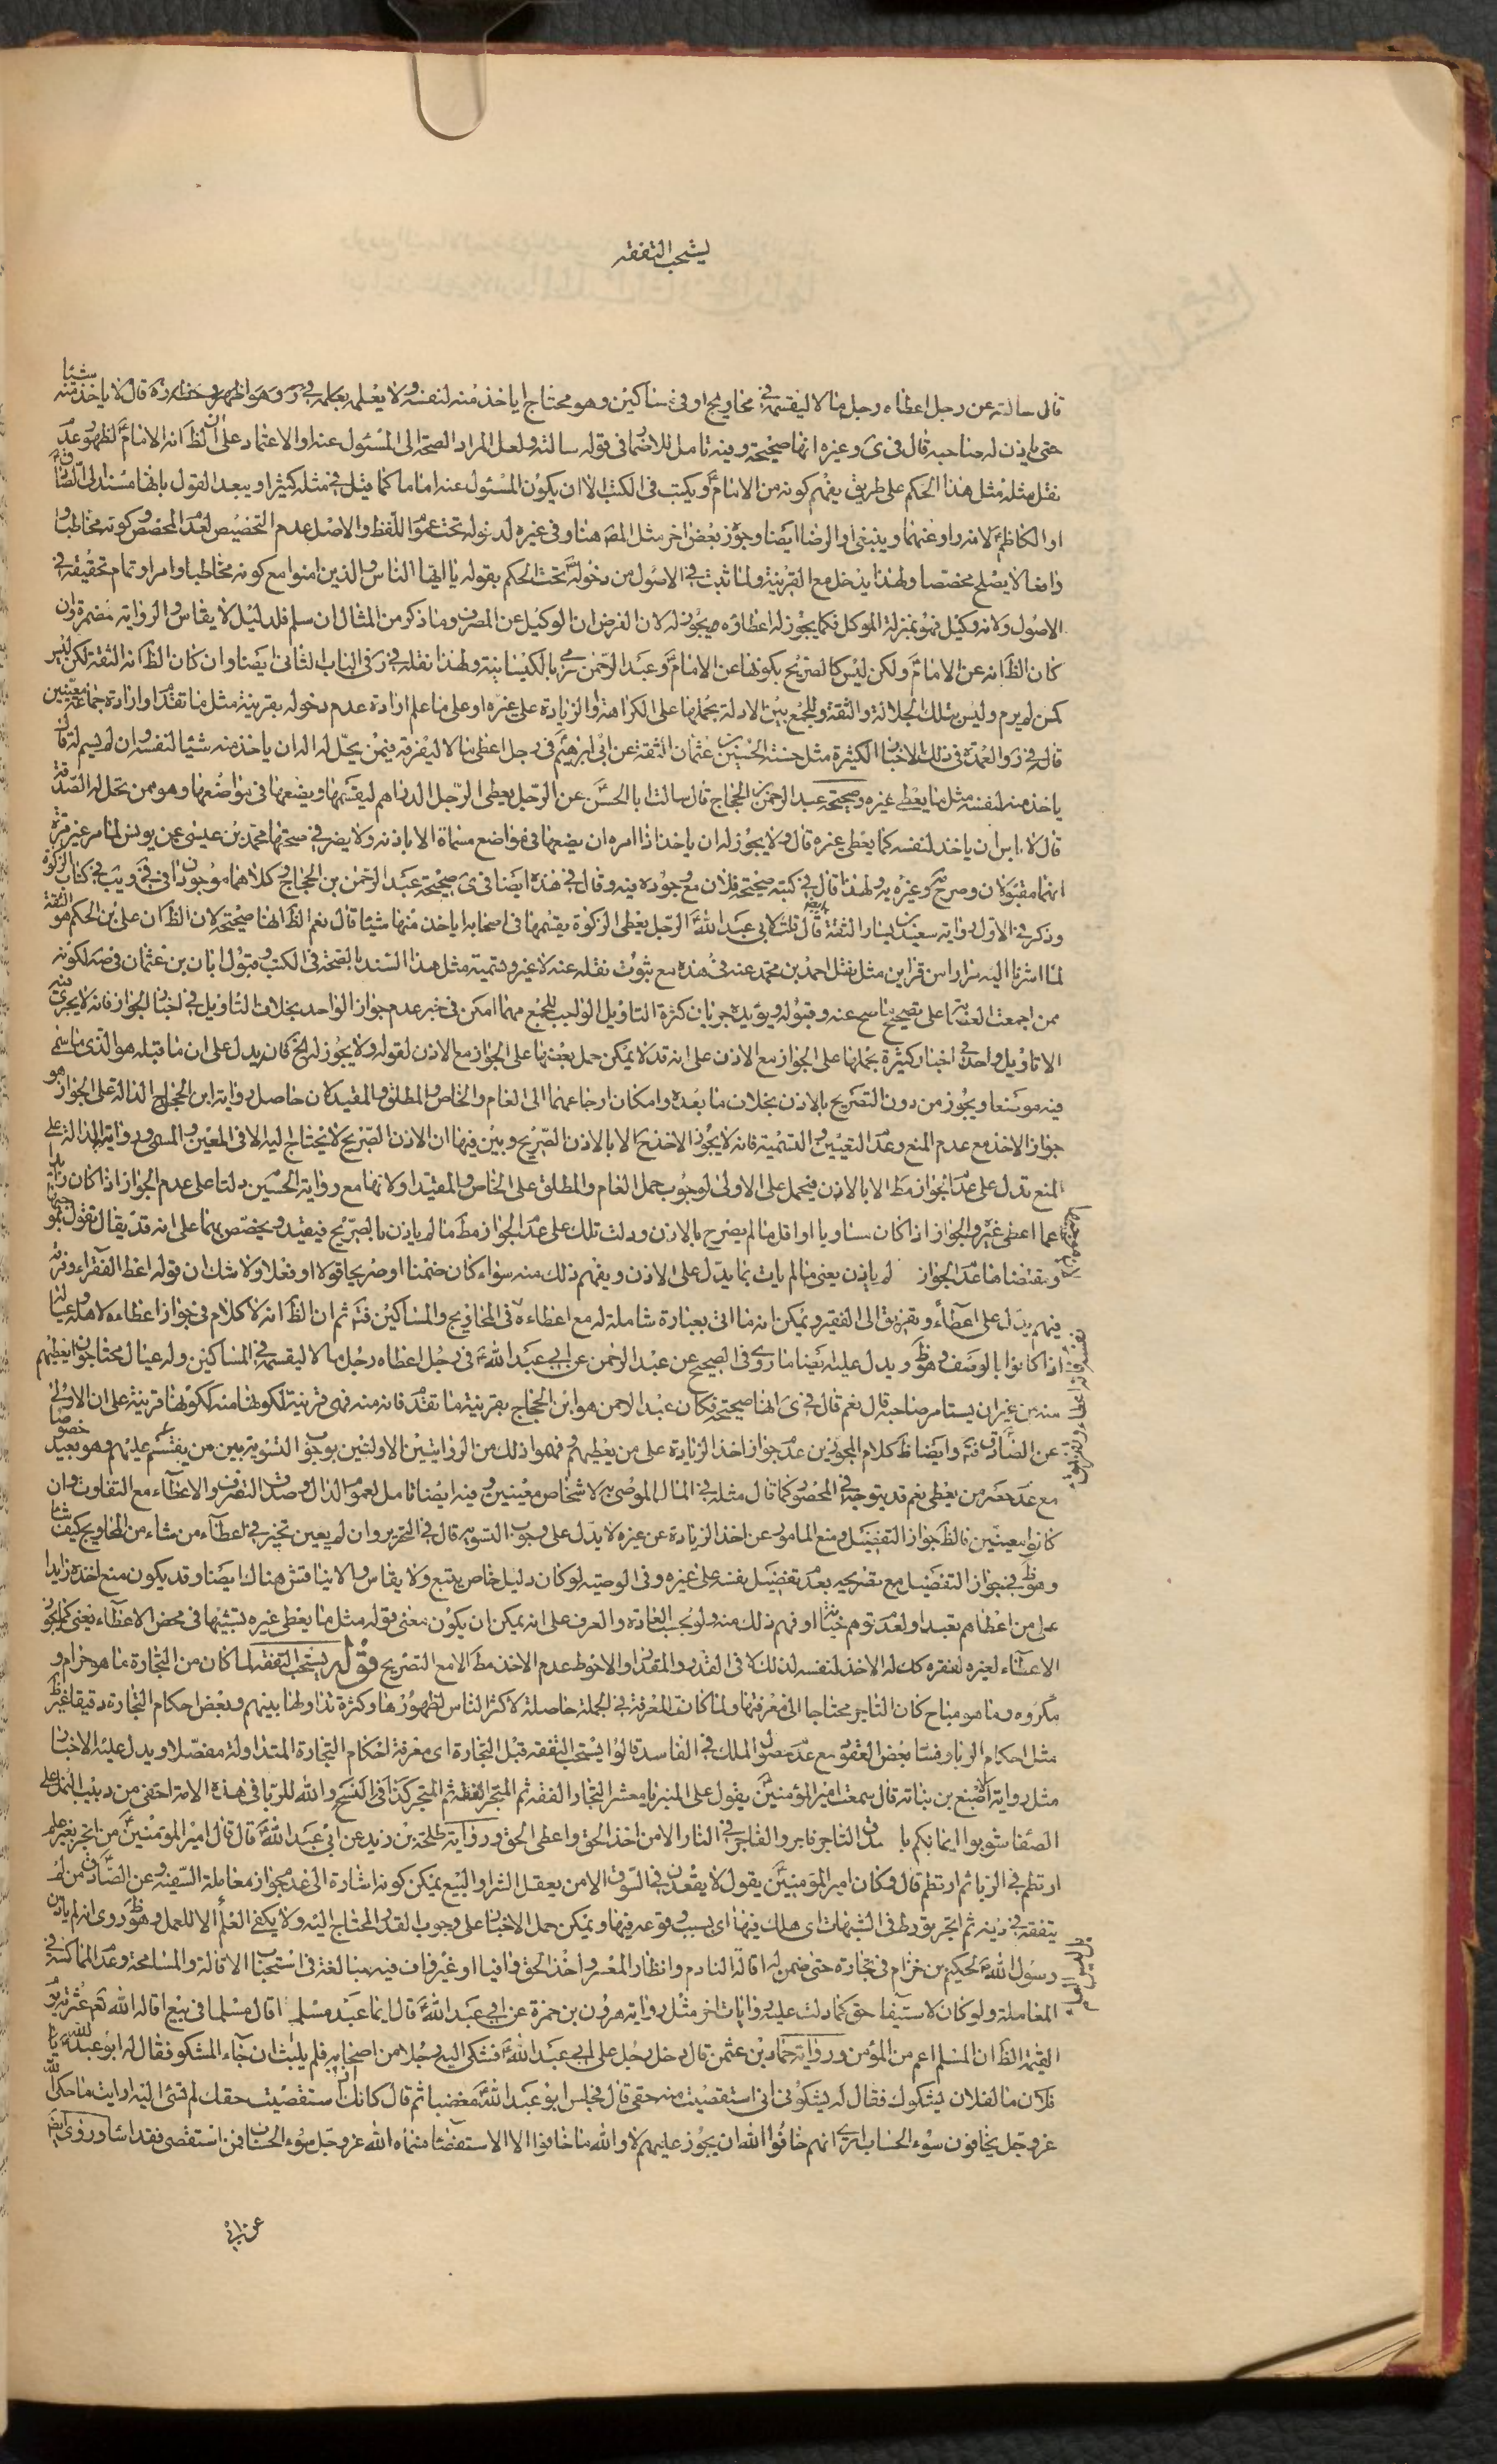 يستحب التفقه
قال سالته عن رجل اعطاه رجل مالا ليقسمه في محاويج او في مساكين وهو محتاج ايأخذ منه لنفسه ولا يعلمه قال لا يأخذ منه شيئا
حتى ياذن له صاحبه قال في ى وغيره انها صحيحة وفيه تامل للاضمار في قوله سالته ولعل المراد الصحة الى المسئول عنه او الاعتماد على ان الظ انه الامام ع لظهور عدم
نقل مثله مثل هذا الحكم على طريق يفهم كونه من الامام ع ويكتب في الكتب الا ان يكون المسئول عنه اماما كما قيل في مثله كثيرا ويبعد القول بانها مسندة الى الصادق ع
او الكاظم ع لانه راو عنهما وينبغي او الرضا ايضا وجوز بعض اخر مثل المص هنا وفي غيره لدخوله تحت عموم اللفظ والاصل عدم التخصيص لعدم المخصص وكونه مخاطبا
دافعا لا يصلح مخصصا ولهذا يدخل مع القرينة ولما ثبت في الاصول من دخوله ص تحت الحكم بقوله يا ايها الناس والذين امنوا مع كونه مخاطبا وامرا وتمام تحقيقه في
الاصول ولانه وكيل فهو بمنزلة الموكل فكما يجوز له اعطاؤه يجوز له لان الفرض ان الوكيل عن المصرف وما ذكر من المثال ان سلم فلدليل لا يقاس والرواية مضمرة وان
كان الظ انه عن الامام ع ولكن ليس كالصريح بكونها عن الامام ع وعبد الرحمن رمي بالكيسانية ولهذا نقله في د في الباب الثاني ايضا وان كان الظ انه الثقة لكن ليس
كمن لم يرم وليس بتلك الجلالة والثقة وللجمع بين الادلة بحملها على الكراهة والزيادة على غيره او على ما علم ارادة عدم دخوله بقرينة مثل ما تقدم او ارادة جماعة معينين
قاله في د والعمدة في ذلك الاخبار الكثيرة مثل حسنة الحسين بن عثمان الثقة عن ابي ابراهيم ع في رجل اعطى مالا ليفرقه فيمن يحل له اله ان ياخذ منه شيئا لنفسه وان لم يسم له قال
ياخذ منه لنفسه مثل ما يعطى غيره وصحيحة عبد الرحمن بن الحجاج قال سالت ابا الحسن ع عن الرجل يعطى الرجل الدراهم ليقسمها ويضعها في مواضعها وهو ممن تحل له الصدقة
قال لا باس ان ياخذ لنفسه كما يعطى غيره قال ولا يجوز له ان ياخذ اذا امره ان يضعها في مواضع مسماة الا باذنه ولا يضر في صحتها محمد بن عيسى عن يونس لما مر غير مرة
انهما مقبولان وصرح وغيره به ولهذا قال في كتبه صحيحة فلان مع وجوده فيه وقال في هذه ايضا في ى صحيحة عبد الرحمن بن الحجاج وكلاهما موجودان في في ويب في كتاب الزكوة
وذكر في الاول رواية سعيد بن يسار الثقة قال قلت لابي عبد الله ع الرجل يعطى الزكوة يقسمها في اصحابه ايأخذ منها شيئا قال نعم الظ انها صحيحة لان الظ ان علي بن الحكم هو الثقة
لما اشرنا اليه مرارا من قراين مثل نقل احمد بن محمد عنه في هذه مع ثبوت نقله عنه لا غير وتسمية مثل هذا السند بالصحة في الكتب وقبول ابان بن عثمان لكونه
ممن اجمعت العصابة على تصحيح ما صح عنه وقبوله ويؤيده جريان كثرة التاويل الواجب للجمع مهما امكن في خبر عدم جواز الواحد بخلاف التاويل في اخبار الجواز فانه لا يجرى فيه
الا تاويل واحد في اخبار كثيرة بحملها على الجواز مع الاذن على انه قد لا يمكن حمل بعضها على الجواز مع الاذن لقوله ولا يجوز له الخ كان يدل على ان ما قبله هو الذي ما سمى
فيه موضعا ويجوز من دون التصريح بالاذن بخلاف ما بعده وامكان ارجاعهما الى العام والخاص والمطلق والمقيد كان حاصل رواية ابن الحجاج الدالة على الجواز هو
جواز الاخذ مع عدم المنع وعدم التعيين والتسمية فانه لا يجوز الاخذ ح الا بالاذن الصريح وبين فيها ان الاذن الصريح لا يحتاج اليه الا في المعين والمسمى ورواية الدالة على
المنع تدل على عدم الجواز مط الا بالاذن فيحمل على الاولى لوجوب حمل العام والمطلق على الخاص والمقيد ولانها مع رواية الحسين دلتا على عدم الجواز اذا كان زايدا
عما اعطى غيره والجواز اذا كان مساويا او اقل ما لم يصرح بالاذن ودلت تلك على عدم الجواز مط ما لم ياذن بالصريح فيقيد ويخصص بهما على انه قد يقال نقول بموجبها
ومقتضاها عدم الجواز لم ياذن يعني ما لم يات بما يدل على الاذن ويفهم ذلك منه سواء كان ضمنا او صريحا قولا او فعلا ولا شك ان قوله اعط الفقراء وفرقه
فيهم يدل على اعطاء وتفريق الى الفقير ويمكن انه ما اتى بعبارة شاملة له مع اعطاءه في المحاويج والمساكين فتم ثم ان الظ انه لا كلام في جواز اعطاءه لاهله وعياله
اذا كانوا بالوصف وهو ظ ويدل عليه ايضا ما روى في الصحيح عن عبد الرحمن عن ابي عبد الله ع في رجل اعطاه رجل مالا ليقسمه في المساكين وله عيال محتاجون ايعطيهم
منه من غير ان يستامر صاحبه قال نعم قال في ى انها صحيحة فكان عبد الرحمن هو ابن الحجاج بقرينة ما تقدم فانه منه فهي قرينة لكونها منه لكونها قرينة على ان الاولى
عن الصادق ع فتم وايضا ظ كلام المجوزين عدم جواز اخذ الزيادة على من يعطيهم فهموا ذلك من الروايتين الاولتين بوجوب التسوية بين من يقسم عليهم وهو بعيد خصوصا
مع عدم حصر من يعطى نعم قد يتوجه في المحصور كما قال مثله في المال الموصى به لاشخاص معينين وفيه ايضا تامل لعموم الدال وصدق التصرف والاعطاء مع التفاوت وان
كانوا معينين فالظ جواز التفضيل ومنع المامور عن اخذ الزيادة عن غيره لا يدل على وجوب التسويه قال في التحرير وان لم يعين تخير في اعطاء من شاء من المحاويج كيف شاء
وهو ظ في جواز التفضيل مع تصريحه بعدم تفضيل نفسه على غيره وفي الوصية لو كان دليل خاص يتبع ولا يقاس والا يناقش هناك ايضا وقد يكون منع اخذه زايدا
على من اعطاهم تعبدا ولعدم توهم خيانة او فهم ذلك منه ولو بحسب العادة والعرف على انه يمكن ان يكون معنى قوله مثل ما يعطى غيره تشبيها في محض الاعطاء يعني كما يجوز
الاعطاء لغيره لفقره كك له الاخذ لنفسه لذلك لا في القدر والمقدار والاحوط عدم الاخذ مط الا مع التصريح قوله يستحب التفقه لما كان من التجارة ما هو حرام و
مكروه وما هو مباح كان التاجر محتاجا الى معرفتها ولما كانت المعرفة في الجملة حاصلة لاكثر الناس لظهورها وكثرة تداولها بينهم وبعض احكام التجارة دقيقا غير ظ
مثل احكام الربا وفساد بعض العقود مع عدم حصول الملك في الفاسد قالوا يستحب التفقه قبل التجارة اى معرفة احكام التجارة المتداولة مفصلا ويدل عليه الاخبار
مثل رواية الاصبغ بن نباته قال سمعت امير المؤمنين ع يقول على المنبر يا معشر التجار الفقه ثم المتجر الفقه ثم المتجر كذا في النسخ والله للربا في هذه الامة اخفى من دبيب النمل على
الصفا شوبوا ايمانكم با لصدق التاجر فاجر والفاجر في النار الا من اخذ الحق واعطى الحق ورواية طلحة بن زيد عن ابي عبد الله ع قال قال امير المؤمنين ع من اتجر بغير علم
ارتطم في الربا ثم ارتطم قال وكان امير المؤمنين ع يقول لا يقعدن في السوق الا من يعقل الشرا والبيع يمكن كونه اشارة الى عدم جواز معاملة السفيه وعن الصادق ع من لم
يتفقه في دينه ثم اتجر تورط في الشبهات اى هلك فيها اى بسبب وقوعه فيها ويمكن حمل الاخبار على وجوب القدر المحتاج اليه ولا يكفى العلم الا للعمل وهو ظ وروى انه لم ياذن
رسول الله ص لحكيم بن حزام في تجارة حتى ضمن له اقالة النادم وانظار المعسر واخذ الحق وافيا او غير واف فيه مبالغة في استحباب الاقالة والمسامحة وعدم المماكسة في
المعاملة ولو كان لاستيفا حق كما دلت عليه روايات اخر مثل رواية هرون بن حمزة عن ابي عبد الله ع قال ايما عبد مسلم اقال مسلما في بيع اقاله الله تع عثرته يوم
القيمة الظ ان المسلم اعم من المؤمن ورواية حماد بن عثمن قال دخل رجل على ابي عبد الله ع فشكى اليه رجلا من اصحابه فلم يلبث ان جاء المشكو فقال له ابو عبد الله ع يا
فلان ما لفلان يشكوك فقال له يشكوني اني استقضيت منه حقي قال فجلس ابو عبد الله ع مغضبا ثم قال كانك اذا استقضيت حقك لم تسئ اليه ارايت ما حكى الله
عز وجل يخافون سوء الحساب اترى انهم خافوا الله ان يجوز عليهم لا والله ما خافوا الا الاستقضا فسماه الله عز وجل سوء الحساب فمن استقضى فقد اساء وروى ايضا
عن ابي